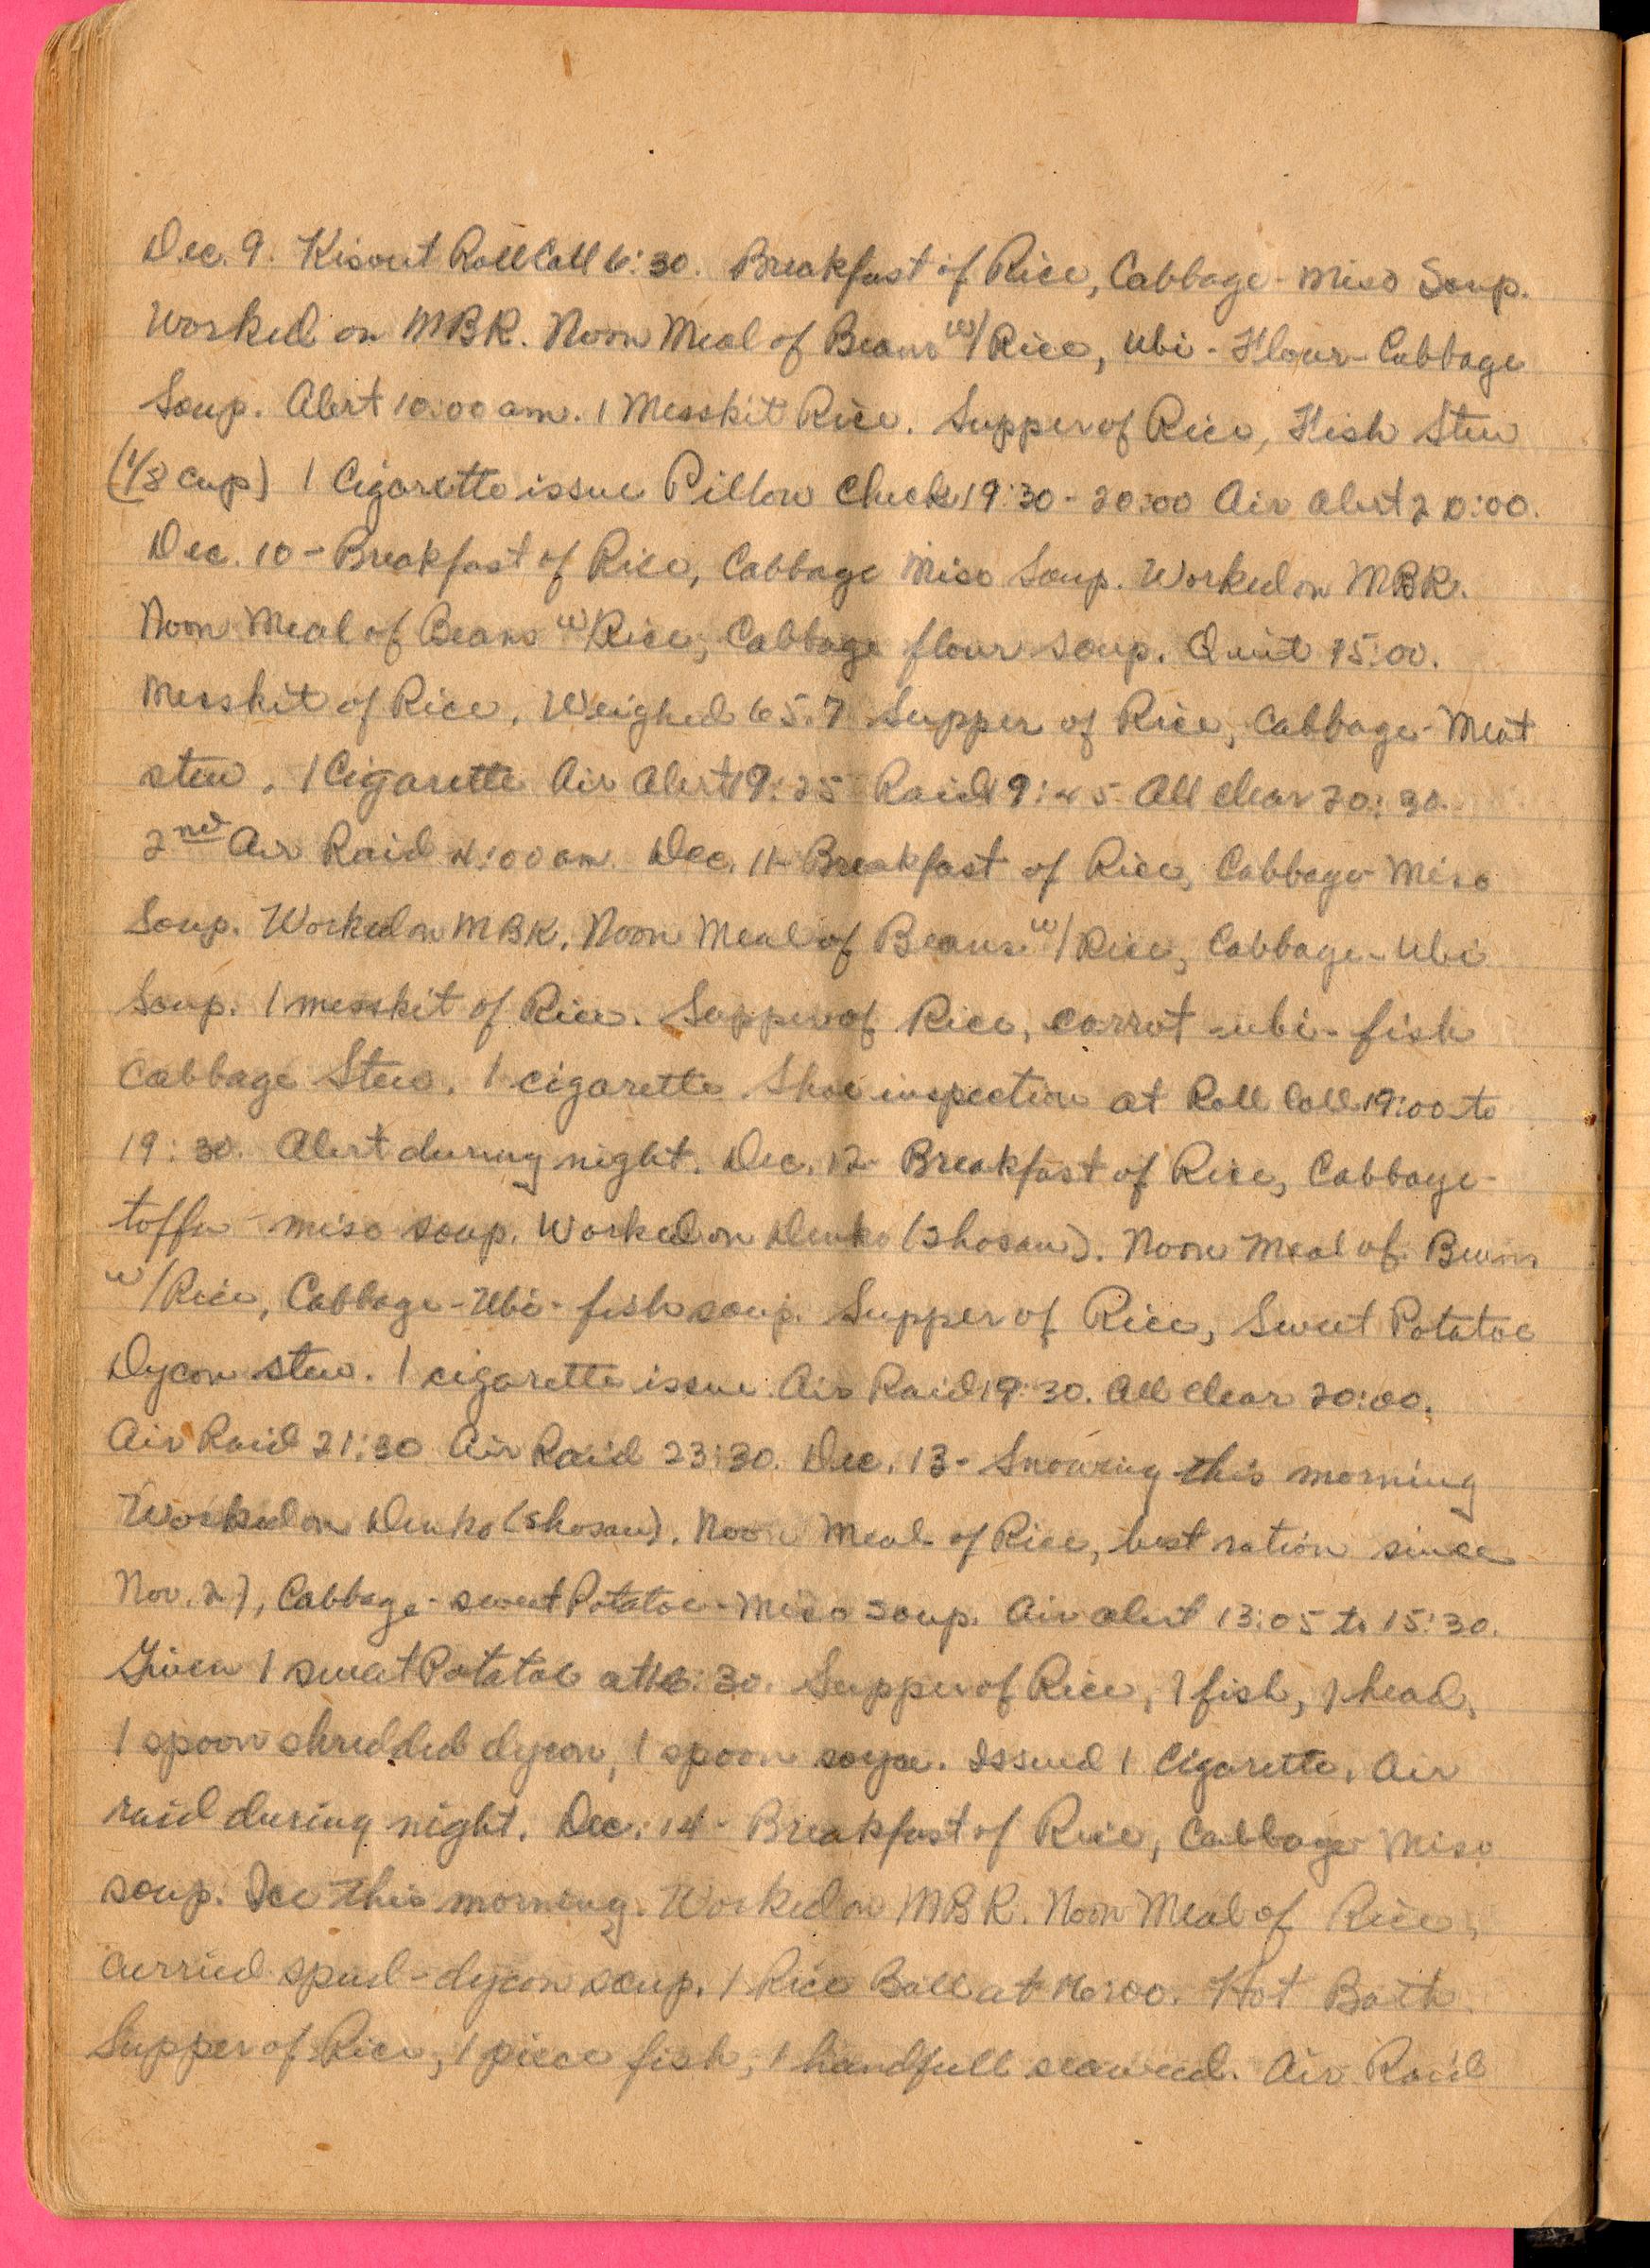 Dec. 9. Kiowet Roll Call 6:30. Breakfast of Rice, Cabbage - Miso Soup.
Worked on MBK. Noon Meal of Beans w/Rice, Ubi - Flour - Cabbage
Soup. Alert 10:00 am. 1 Messkit Rice. Supper of Rice, Fish Stew
(1/8 cup) 1 Cigarette issue Pillow Check 19:30 - 20:00 Air alert 20:00.
Dec. 10 - Breakfast of Rice, Cabbage Miso Soup. Worked on MBK.
Noon Meal of Beans w/Rice, Cabbage flour soup. Quit 15:00.
Messkit of Rice. Weighed 65.7 Supper of Rice, Cabbage - Meat
stew. 1 Cigarette Air Alert 19:25 Raid 19:45 All clear 20:30.
2nd Air Raid 4:00 am. Dec. 11 - Breakfast of Rice, Cabbage - Miso
Soup. Worked on MBK. Noon Meal of Beans w/Rice, Cabbage - Ubi
Soup. 1 messkit of Rice. Supper of Rice, carrot - ubi - fish
Cabbage Stew. 1 cigarette. Shoe inspection at Roll Call 19:00 to
19:30. Alert during night. Dec. 12 - Breakfast of Rice, Cabbage -
toffu - miso soup. Worked on Denko (Shosan). Noon Meal of Beans
w/Rice, Cabbage - Ubi - fish soup. Supper of Rice, Sweet Potatoe
Dycon stew. 1 cigarette issue. Air Raid 19:30. All clear 20:00.
Air Raid 21:30 Air Raid 23:30. Dec. 13 - Snowing this morning
Worked on Denko (Shosan). Noon Meal of Rice, best ration since
Nov. 27, Cabbage - sweet Potatoe - Miso soup. Air alert 13:05 to 15:30.
Given 1 sweet Potatoe at 16:30. Supper of Rice, 1 fish, 1 head,
1 spoon shredded dycon, 1 spoon soya. Issued 1 Cigarette. Air
raid during night. Dec. 14 - Breakfast of Rice, Cabbage Miso
soup. Ice this morning. Worked on MBK. Noon Meal of Rice,
curried spud - dycon soup. 1 Rice Ball at 16:00. Hot Bath.
Supper of Rice, 1 piece fish, 1 handfull seaweed. Air Raid